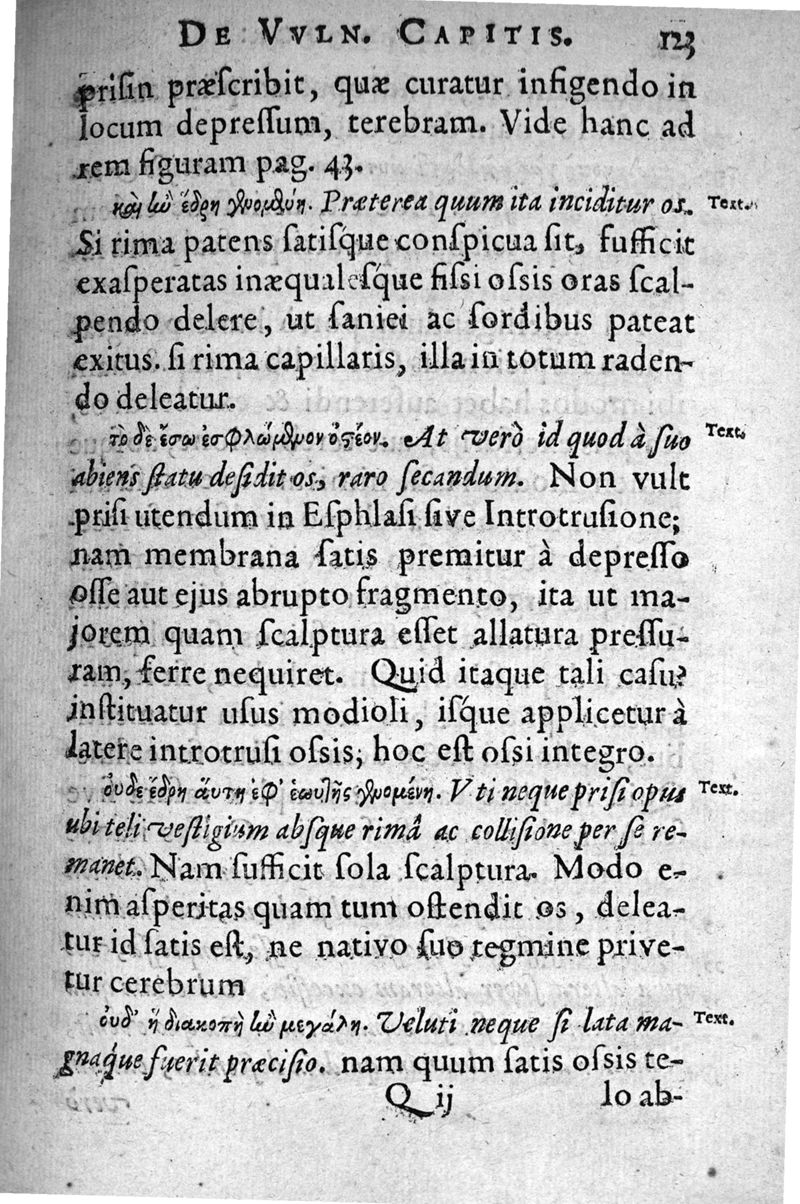 DE VVLN. CAPITIS. 123
prisin præſcribit, quæ curatur infigendo in
locum depreſſum, terebram. Vide hanc ad
rem figuram pag. 43.
Præterea quum ita inciditur os. Text.
Si rima patens ſatiſq́ue conſpicua ſit, ſufficit
exaſperatas inæqualeſq́ue fiſsi oſsis oras ſcal-
pendo delere, ut ſaniei ac ſordibus pateat
exitus. ſi rima capillaris, illa in totum raden-
do deleatur.
τὸ δὲ ἔσω ἐσφλώμϑμον ὀςέον. At verò id quod à ſuo Text.
abiens ſtatu deſidit os, raro ſecandum. Non vult
priſi utendum in Eſphlaſi ſive Introtruſione;
nam membrana ſatis premitur à depreſſo
oſſe aut ejus abrupto fragmento, ita ut ma-
jorem quam ſcalptura eſſet allatura preſſu-
ram, ferre nequiret. Quid itaque tali caſu?
inſtituatur uſus modioli, iſq́ue applicetur à
latere introtruſi oſsis; hoc eſt oſsi integro.
οὐδε ἕδρη ἅυτη ἐφ' ἑωυτῆς γενομένη. Vti neque priſi opus Text.
ubi teli veſtigium abſque rimâ ac colliſione per ſe re-
manet. Nam ſufficit ſola ſcalptura. Modo e-
nim aſperitas quam tum oſtendit os, delea-
tur id ſatis eſt, ne nativo ſuo tegmine prive-
tur cerebrum
οὐδ' ἡ διακοπὴ ἢν μεγάλη. Veluti neque ſi lata ma- Text.
gnaq́ue fuerit præciſio. nam quum ſatis oſsis te-
Q ij lo ab-